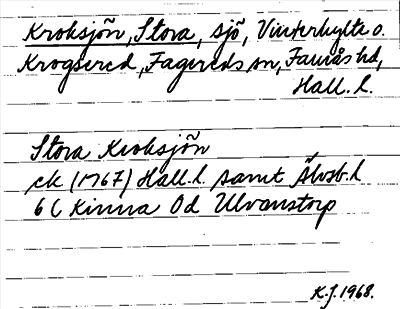 Kroksjön, Stora, sjö, Vinterhylte o.
Krogsered, Fagereds sn, Faurås hd,
Hall. l.
Stora Kroksjön
ek (1767) Hall. l. samt Älvsb. l
6 C Kinna Od Ulvanstorp
K.J. 1968.